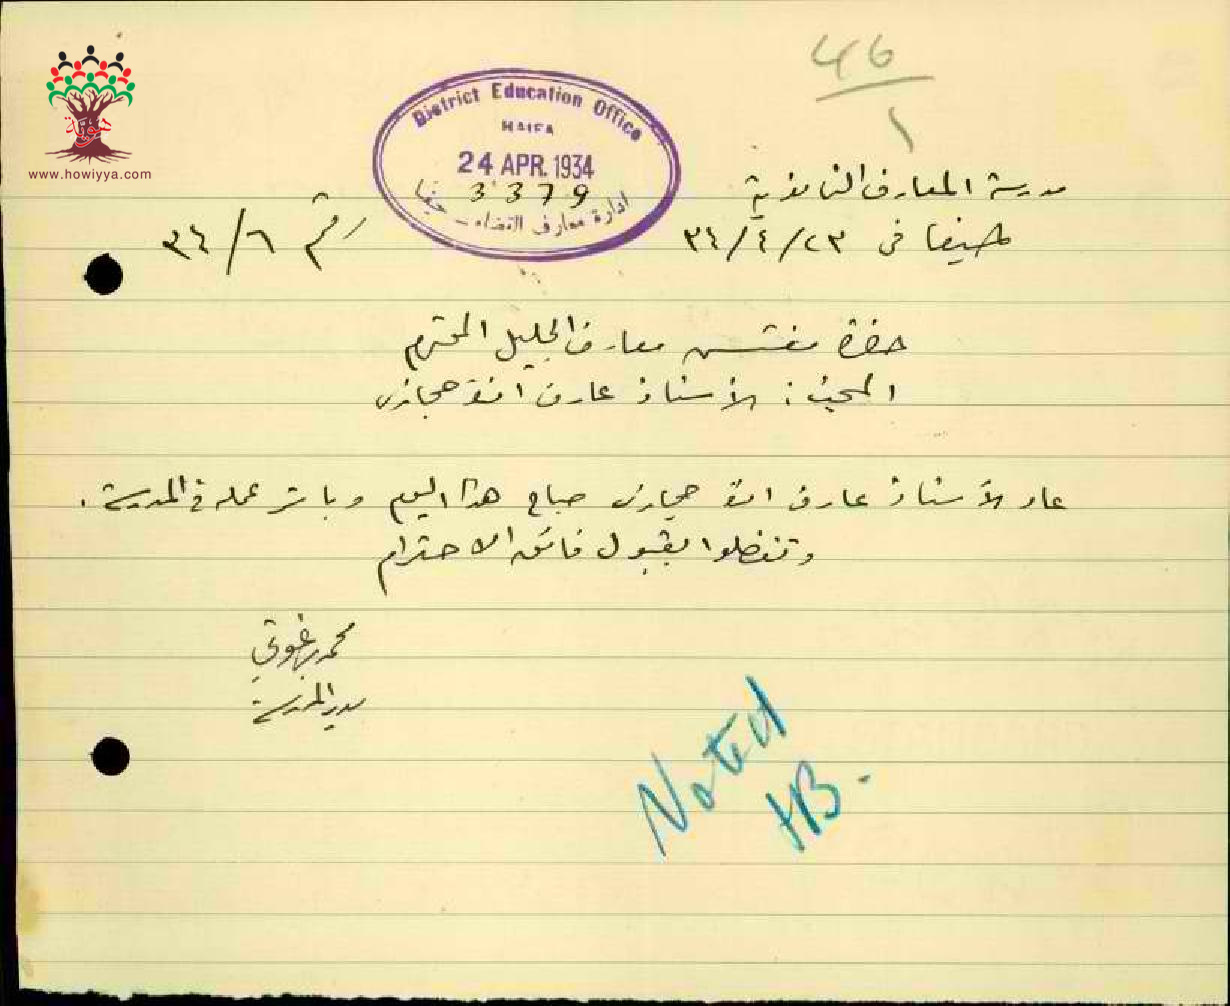 46
١
www.howiyya.com
District Education Office
HAIFA
24 APR. 1934
3379
ادارة معارف القضاء - حيفا
مدرسة المعارف الثانوية
حيفا في ٢٣/٤/٣٤
رقم ٣٤/٦
حضرة مفتش معارف الجليل المحترم
المبحث : الأستاذ عارف حجازي
عاد الأستاذ عارف حجازي صباح هذا اليوم وباشر عمله في المدرسة .
وتفضلوا بقبول فائق الاحترام
محمد برغوثي
مدير المدرسة
Noted
HB.